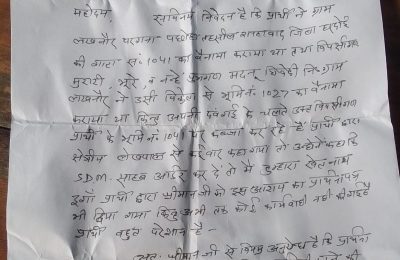 महोदय,
सविनय निवेदन है कि प्रार्थी ने ग्राम
लखनौर परगना तहसील शाहाबाद जिला हरदोई
की गाटा सं. 1041 का बैनामा कराया था तथा विपक्षीगण
मुरारी, भूरे व नन्हे पुत्रगण निo ग्राम
लखनौर ने उसी विक्रेता से भूमि नं. 1027 का बैनामा
कराया था किन्तु अपनी दबंगई के चलते उक्त विपक्षीगण
प्रार्थी के भूमि नं. 1041 पर कब्जा कर रहे हैं प्रार्थी द्वारा
क्षेत्रीय लेखपाल से कई बार कहा गया तो उन्होंने कहा कि
SDM साहब आर्डर कर दें तो मैं तुम्हारा खेत नाप
दूंगा प्रार्थी द्वारा श्रीमान जी को इस आशय का प्रार्थनापत्र
भी दिया गया किन्तु अभी तक कोई कार्यवाही नहीं की गई है
प्रार्थी बहुत परेशान है -
अतः श्रीमान जी से विनम्र अनुरोध है कि प्रार्थी